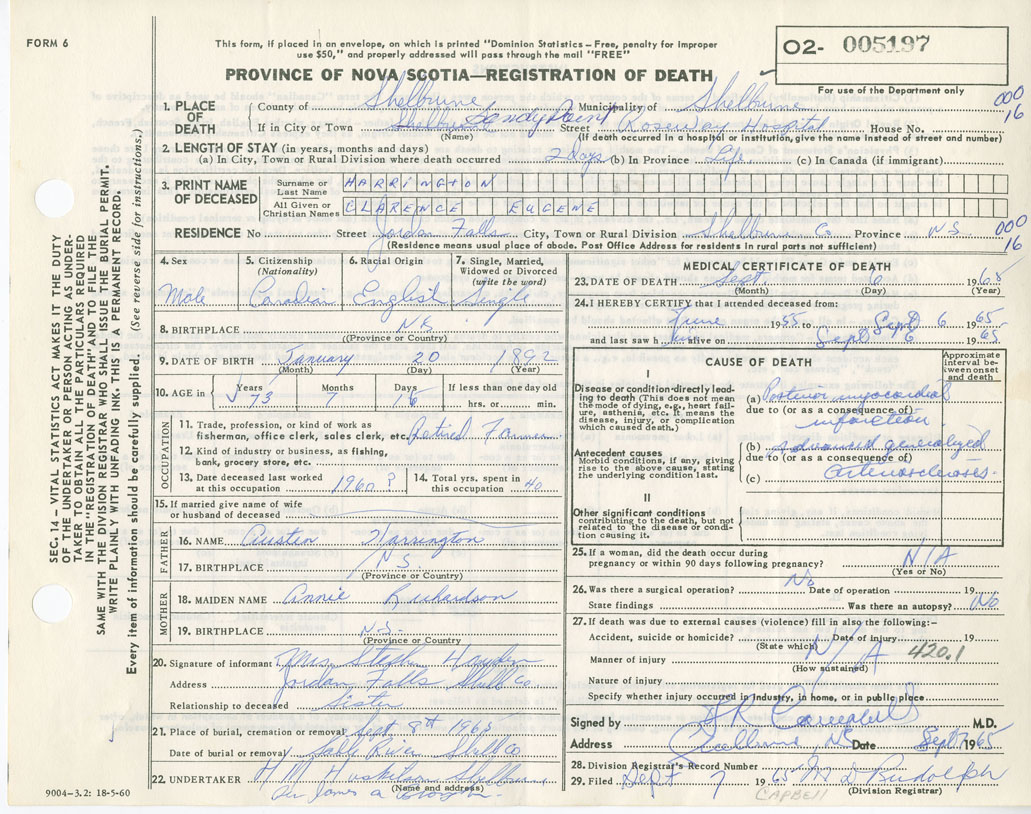 FORM 6
This form, if placed in an envelope, on which is printed "Dominion Statistics – Free, penalty for improper
use $50," and properly addressed will pass through the mail "FREE"
O2- 005197
For use of the Department only
PROVINCE OF NOVA SCOTIA—REGISTRATION OF DEATH
000
16
1. PLACE OF DEATH
County of Shelburne Municipality of Shelburne
If in City or Town Shelburne Sandy Point Street (Roseway Hospital House No.
(Name) (If death occurred in a hospital or institution, give the name instead of street and number)
2. LENGTH OF STAY (in years, months and days)
(a) In City, Town or Rural Division where death occurred 2 days (b) In Province Life (c) In Canada (if immigrant)
3. PRINT NAME OF DECEASED
Surname or Last Name HARRINGTON
All Given or Christian Names CLARENCE EUGENE
RESIDENCE No Street Jordan Falls City, Town or Rural Division Shelburne Co Province N.S.
(Residence means usual place of abode. Post Office Address for residents in rural parts not sufficient)
000
16
4. Sex Male
5. Citizenship (Nationality) Canadian
6. Racial Origin English
7. Single, Married, Widowed or Divorced (write the word) Single
8. BIRTHPLACE
(Province or Country)
9. DATE OF BIRTH January 20 1892
(Month) (Day) (Year)
10. AGE in Years 73 Months 7 Days 16 If less than one day old
hrs. or min.
OCCUPATION
11. Trade, profession, or kind of work as
fisherman, office clerk, sales clerk, etc. Retired Farmer
12. Kind of industry or business, as fishing,
bank, grocery store, etc.
13. Date deceased last worked
at this occupation 1960 ?
14. Total yrs. spent in
this occupation 40
15. If married give name of wife
or husband of deceased
FATHER
16. NAME Austen Harrington
17. BIRTHPLACE N.S.
(Province or Country)
MOTHER
18. MAIDEN NAME Annie Richardson
19. BIRTHPLACE N.S.
(Province or Country
20. Signature of informant Mrs. Hayden
Address Jordan Falls Shelb Co.
Relationship to deceased Sister
21. Place of burial, cremation or removal Sept 8th 1965
Date of burial or removal Sable River Shelb Co
22. UNDERTAKER H M Huskilson Shelburne
(Name and address)
Per James A
MEDICAL CERTIFICATE OF DEATH
23. DATE OF DEATH Sept. 6 1965
(Month) (Day) (Year)
24. I HEREBY CERTIFY that I attended deceased from:
June 1955 to Sept 6 1965
and last saw h alive on Sept 6 1965
CAUSE OF DEATH
Approximate interval between onset and death
I
Disease or condition directly leading to death (This does not mean the mode of dying, e.g., heart failure, asthenia, etc. It means the disease, injury, or complication which caused death.)
(a) Posterior myocardial
due to (or as a consequence of)
infarction
Antecedent causes
Morbid conditions, if any, giving rise to the above cause, stating the underlying condition last.
(b) Advanced generalized
due to (or as a consequence of)
(c) arteriosclerosis.
II
Other significant conditions
contributing to the death, but not related to the disease or condition causing it.
25. If a woman, did the death occur during
pregnancy or within 90 days following pregnancy? N/A
(Yes or No)
26. Was there a surgical operation? No Date of operation 19
State findings Was there an autopsy? No
27. If death was due to external causes (violence) fill in also the following:-
Accident, suicide or homicide? Date of injury 19
(State which)
N/A 420.1
Manner of injury
(How sustained)
Nature of injury
Specify whether injury occurred in industry, in home, or in public place
Signed by M.D.
Address Shelburne, NS Date Sept 7 1965
28. Division Registrar's Record Number
29. Filed Sept 7 1965 M D Rudolph
(Division Registrar)
CAPBELL
SEC. 14 – VITAL STATISTICS ACT MAKES IT THE DUTY
OF THE UNDERTAKER OR PERSON ACTING AS UNDER-
TAKER TO OBTAIN ALL THE PARTICULARS REQUIRED
IN THE "REGISTRATION OF DEATH" AND TO FILE THE
SAME WITH THE DIVISION REGISTRAR WHO SHALL ISSUE THE BURIAL PERMIT.
WRITE PLAINLY WITH UNFADING INK. THIS IS A PERMANENT RECORD.
Every item of information should be carefully supplied. (See reverse side for instructions.)
9004–3.2: 18-5-60